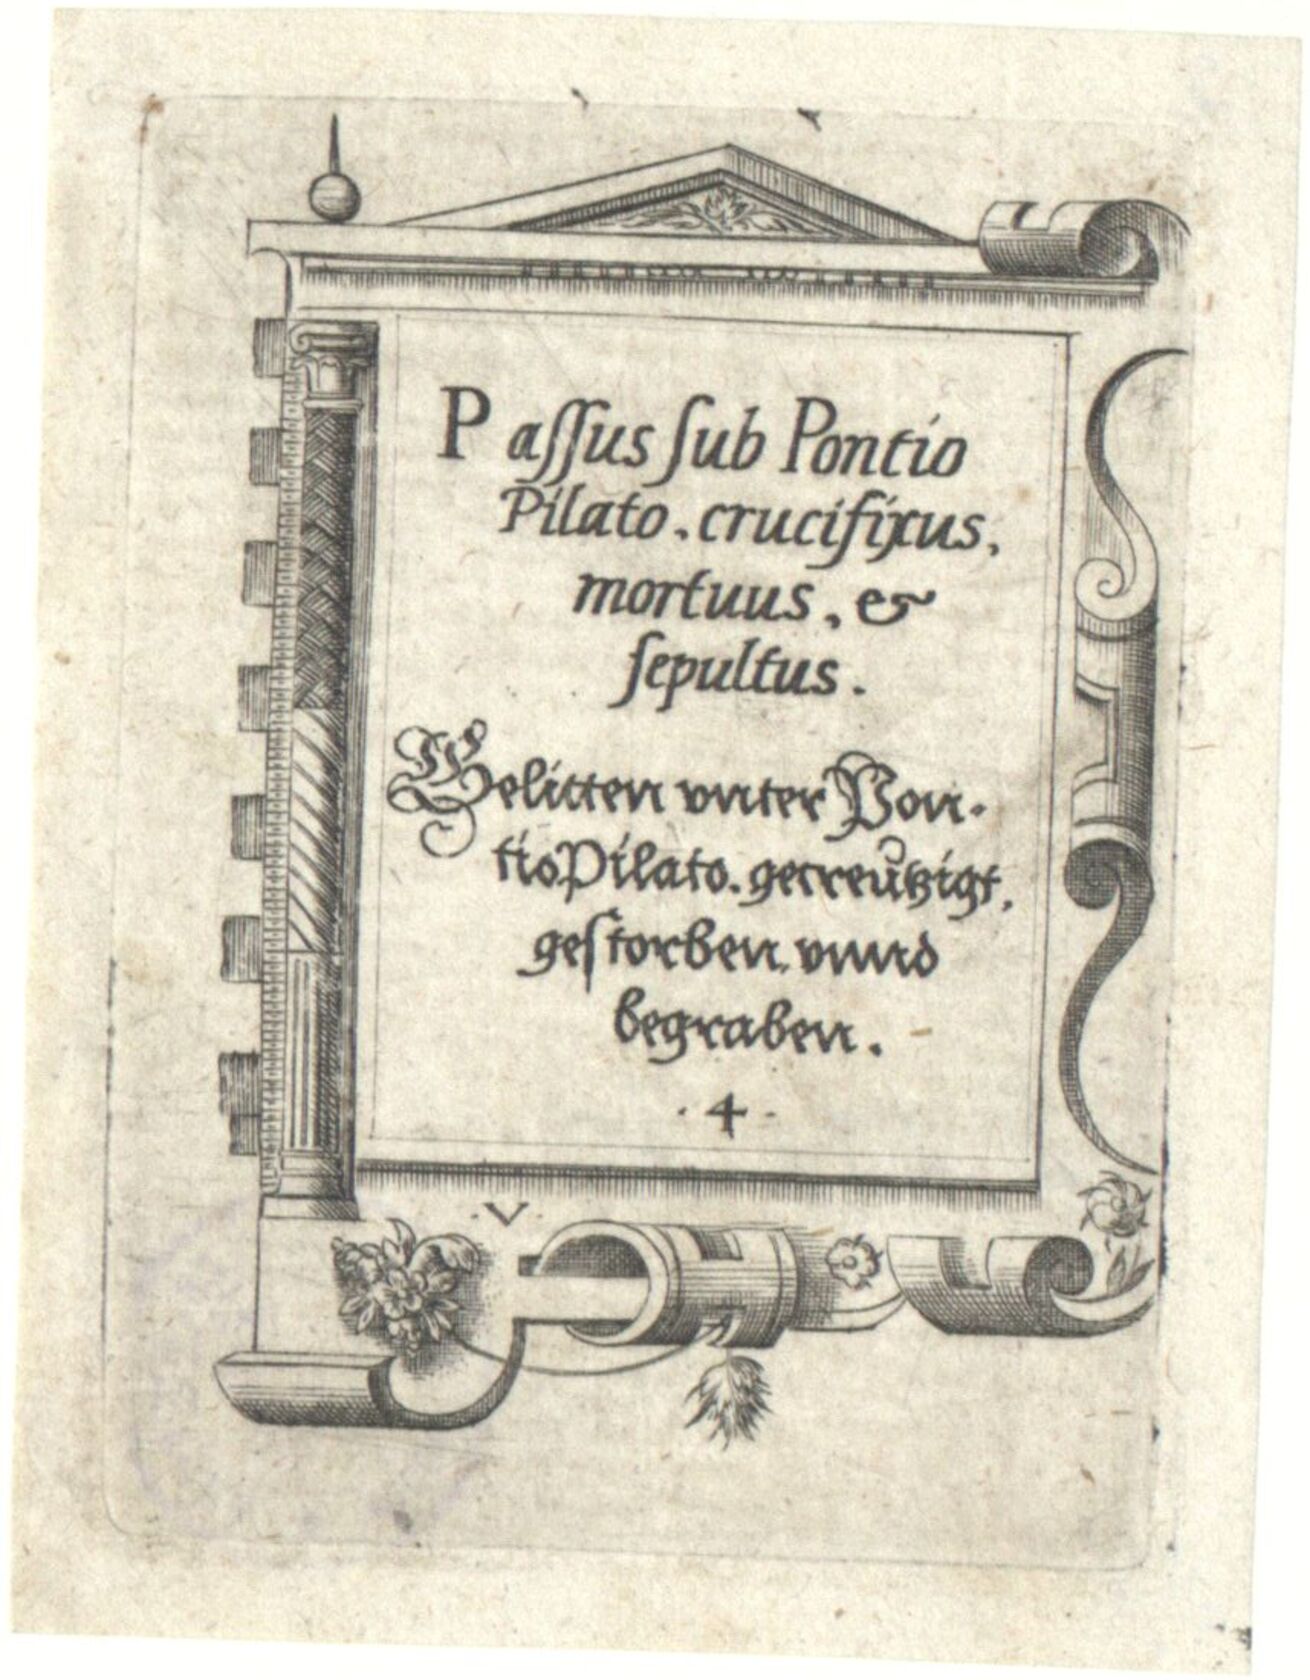 Paſſus ſub Pontio
Pilato. crucifixus,
mortuus, &
ſepultus.
Gelitten vnter Pon-
tio Pilato. gecreützigt,
geſtorben, vnnd
begraben.
·4·
·V·